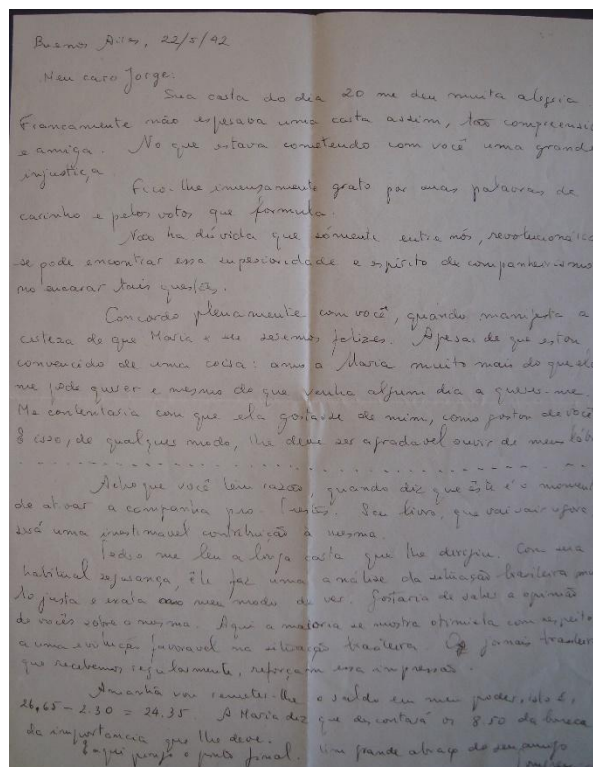 Buenos Aires, 22/5/42
Meu caro Jorge.
Sua carta do dia 20 me deu muita alegria
Francamente não esperava uma carta assim, tão compreensi
e amiga. No que estava cometendo com você uma grande
injustiça
Fico-lhe imensamente grato por suas palavras de
carinho e pelos votos que formula.
Não ha dúvida que sómente entre nós, revolucionário
se pode encontrar essa superioridade e espírito de companheirismo
no encarar tais questões.
Concordo plenamente com você, quando manifesta a
certeza de que Maria e eu seremos felizes. Apesar de que estou
convencido de uma coisa: amo a Maria muito mais do que ela
me pode querer e mesmo do que venha algum dia a querer-me.
Me contentaria com que ela gostasse de mim, como gostou de você
E isso, de qualquer modo, lhe deve ser agradavel ouvir de meus láb
Acho que você tem razão, quando diz que êste é o moment
de ativar a campanha pro Prestes. Seu livro, que vai sair agora
será uma inestimavel contribuição à mesma.
Pedro me leu a longa carta que lhe dirigiu. Com sua
habitual segurança, êle faz uma análise da situação brasileira mui
to justa e exata ao meu modo de ver. Gostaria de saber a opinião
de vocês sobre a mesma. Aqui a maioria se mostra otimista com respeito
a uma evolução favoravel na situação brasileira. Os jornais brasileir
que recebemos regularmente, reforçam essa impressão.
Amanhã vou remeter-lhe o saldo em meu poder, isto é,
26,65 - 2.30 = 24.35. A Maria diz que descontará os 8.50 da
da importancia que lhe deve.
E aqui ponho o ponto final. Um grande abraço do seu amigo